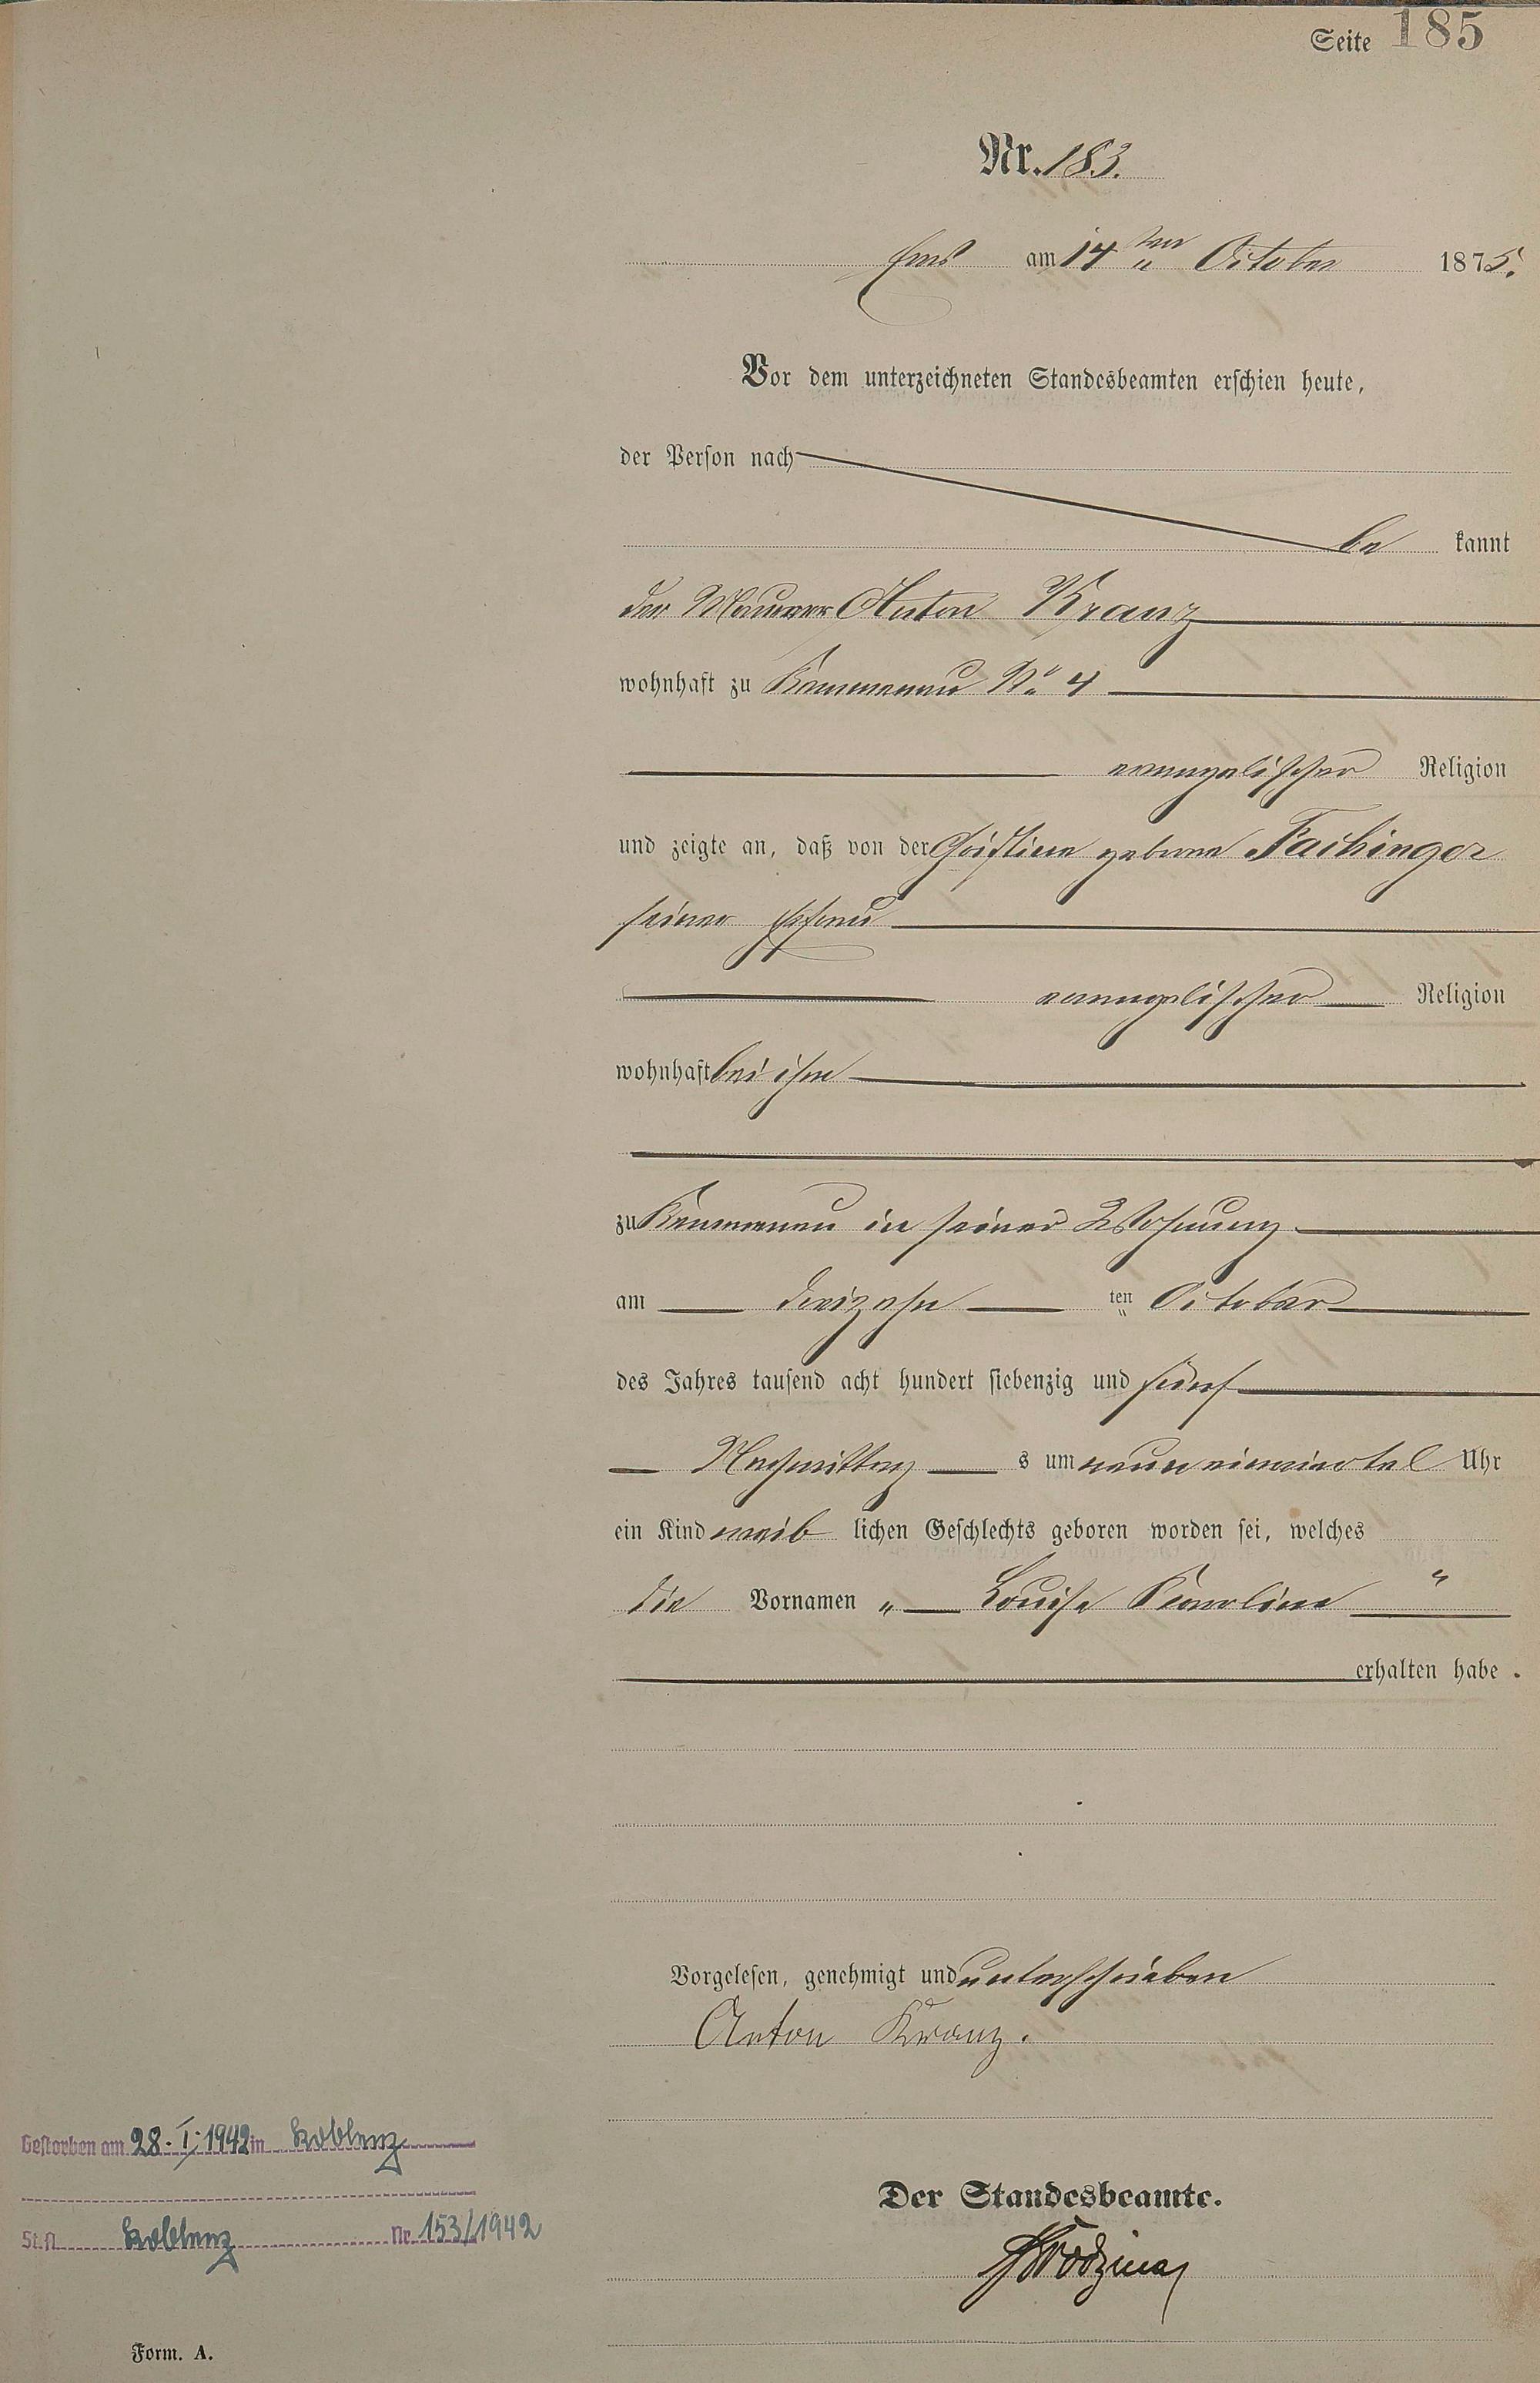 Seite 185
Nr. 183.
Ems am 14ten October 1875.
Vor dem unterzeichneten Standesbeamten erschien heute,
der Person nach
be kannt
der Maurer Anton Kranz
wohnhaft zu Kemmenau No 4
evangelischer Religion
und zeigte an, daß von der Christine geborne Faihinger
seiner Ehefrau
evangelischer Religion
wohnhaft bei ihm
zu Kemmenau in seiner Wohnung
am dreizehn ten October
des Jahres tausend acht hundert siebenzig und fünf
Nachmittag s um neun einviertel Uhr
ein Kind weib lichen Geschlechts geboren worden sei, welches
die Vornamen „ Louise Karoline "
erhalten habe.
Vorgelesen, genehmigt und unterschrieben
Anton Kranz.
Gestorben am 28. I. 1942 in Koblenz
St.A. Koblenz Nr. 153/1942
Der Standesbeamte.
Form. A.